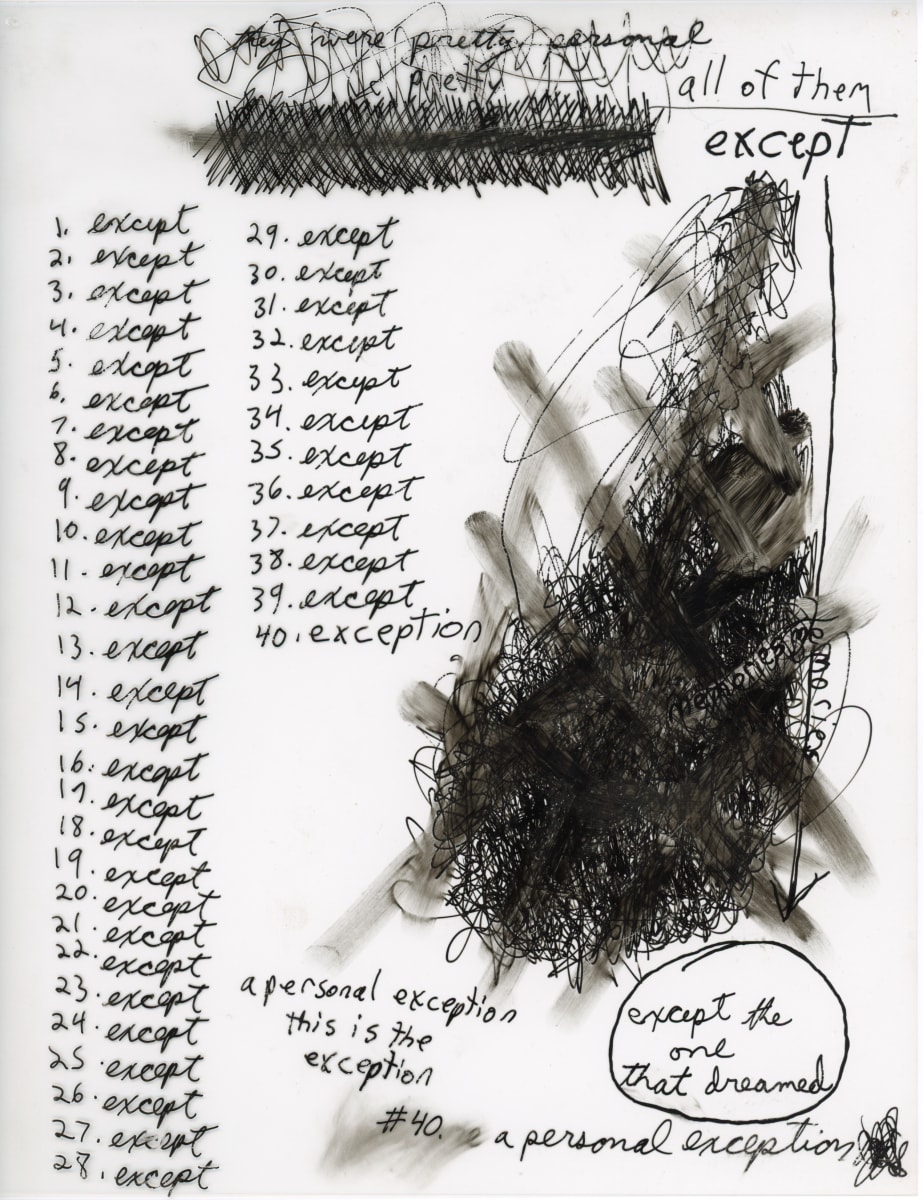 they were pretty personal
pretty
all of them
except
1. except
2. except
3. except
4. except
5. except
6. except
7. except
8. except
9. except
10. except
11. except
12. except
13. except
14. except
15. except
16. except
17. except
18. except
19. except
20. except
21. except
22. except
23. except
24. except
25. except
26. except
27. except
28. except
29. except
30. except
31. except
32. except
33. except
34. except
35. except
36. except
37. except
38. except
39. except
40. exception
memories
memories
a personal exception
this is the
exception
#40.
except the
one
that dreamed
a personal exception